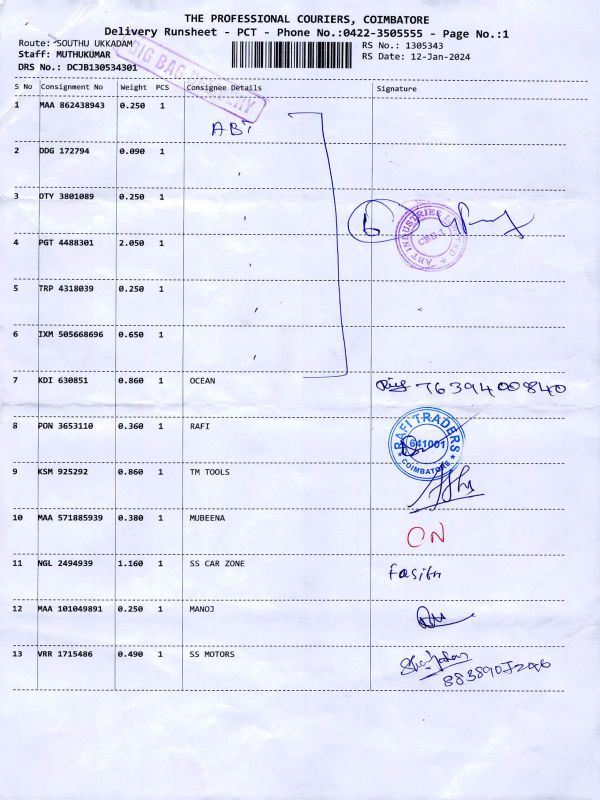 THE PROFESSIONAL COURIERS, COIMBATORE
Delivery Runsheet - PCT - Phone No.:0422-3505555 - Page No.:1
Route: SOUTHU UKKADAM
RS No.: 1305343
Staff: MUTHUKUMAR
RS Date: 12-Jan-2024
DRS No.: DCJB130534301
BIG BAG DELIVERY
S No Consignment No Weight PCS Consignee Details Signature
1 MAA 862438943 0.250 1
ABT
2 DDG 172794 0.090 1
3 DTY 3801089 0.250 1
6
ABT INDUSTRIES LIMITED
CBE-1
4 PGT 4488301 2.050 1
5 TRP 4318039 0.250 1
6 IXM 505668696 0.650 1
7 KDI 630851 0.860 1 OCEAN
7639400840
8 PON 3653110 0.360 1 RAFI
RAFI TRADERS
641001
COIMBATORE
9 KSM 925292 0.860 1 TM TOOLS
10 MAA 571885939 0.380 1 MUBEENA
ON
11 NGL 2494939 1.160 1 SS CAR ZONE
12 MAA 101049891 0.250 1 MANOJ
13 VRR 1715486 0.490 1 SS MOTORS